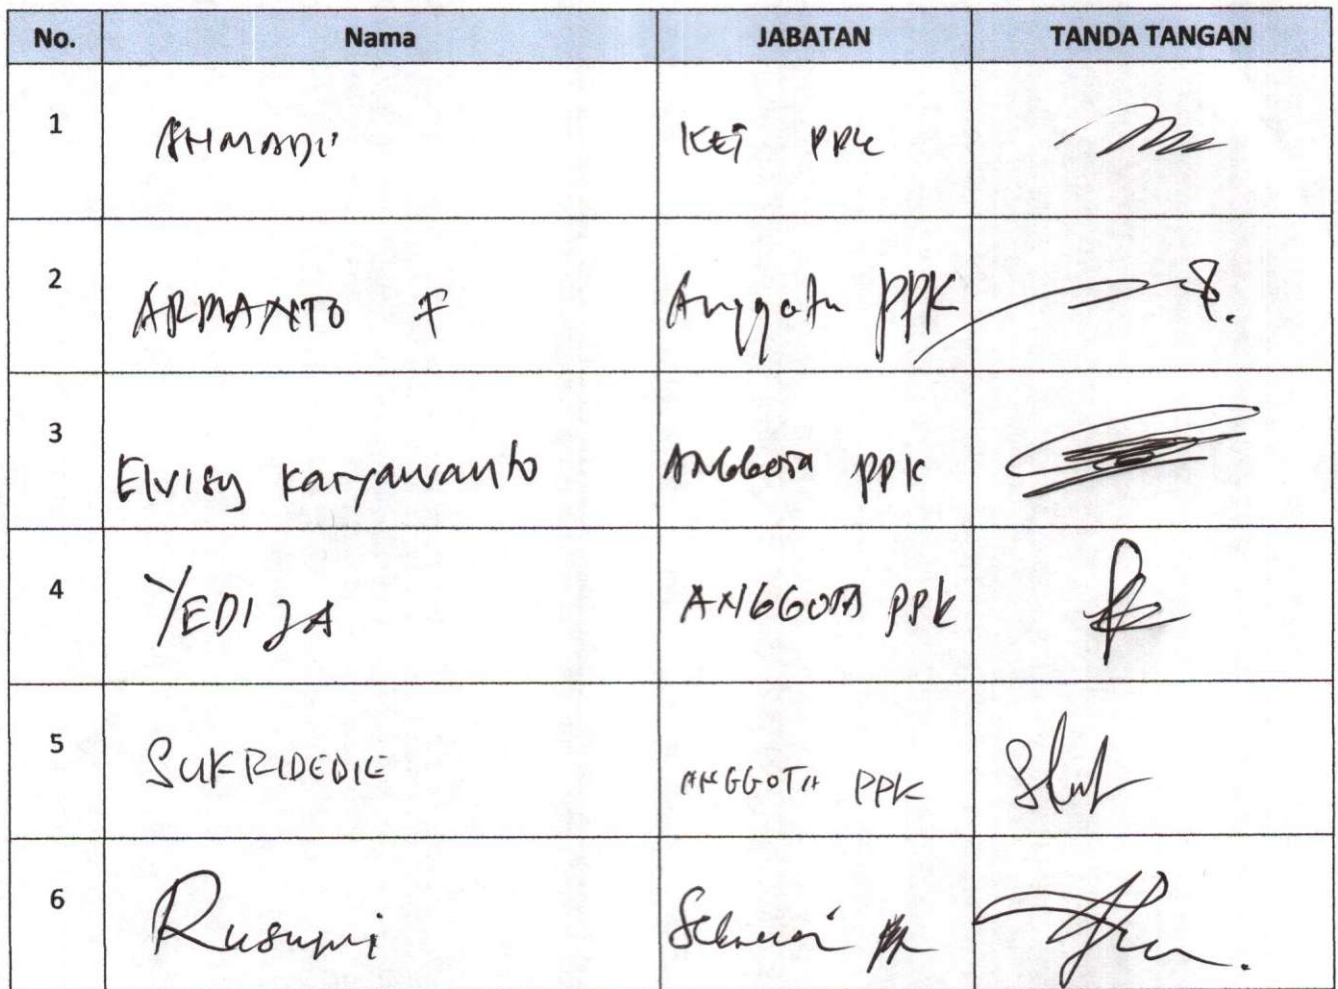 No. Nama JABATAN TANDA TANGAN
1 AHMADI KET PPK
2 ARMANTO F Anggota PPK
3 Elvisy Karyawanto ANGGOTA PPK
4 YEDIJA ANGGOTA PPK
5 SUKRIDEDIE ANGGOTA PPK
6 Rusumi